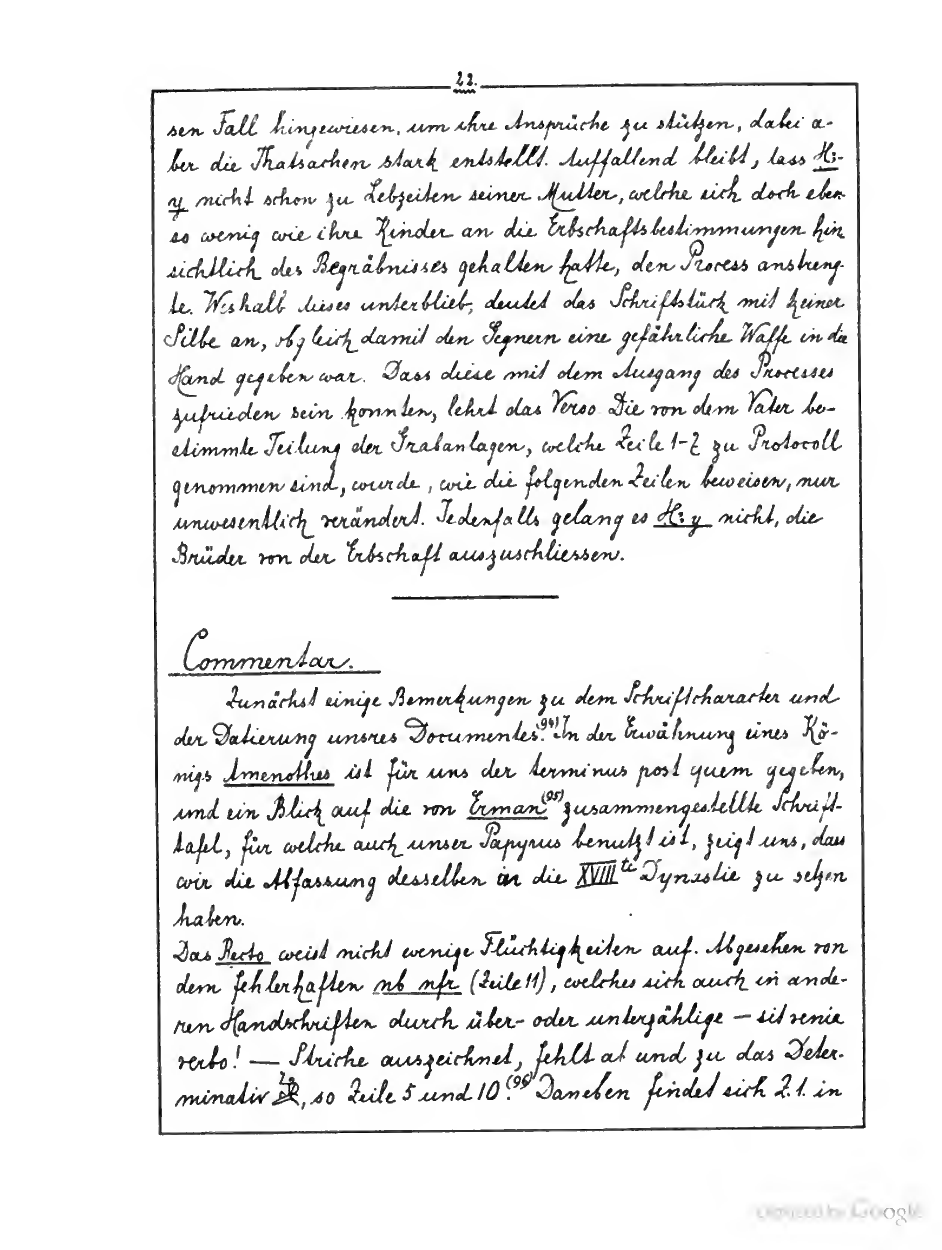 22.
sen Fall hingewiesen, um ihre Ansprüche zu stützen, dabei a-
ber die Thatsachen stark entstellt. Auffallend bleibt, dass H:-
y nicht schon zu Lebzeiten seiner Mutter, welche sich doch eben
so wenig wie ihre Kinder an die Erbschaftsbestimmungen hin
sichtlich des Begräbnisses gehalten hatte, den Process anstreng-
te. Weshalb dieses unterblieb, deutet das Schriftstück mit keiner
Silbe an, obgleich damit den Gegnern eine gefährliche Waffe in die
Hand gegeben war. Dass diese mit dem Ausgang des Processes
zufrieden sein konnten, lehrt das Verso. Die von dem Vater be-
stimmte Teilung der Grabanlagen, welche Zeile 1-7 zu Protocoll
genommen sind, wurde, wie die folgenden Zeilen beweisen, nur
unwesentlich verändert. Jedenfalls gelang es H:y nicht, die
Brüder von der Erbschaft auszuschliessen.
Commentar.
Zunächst einige Bemerkungen zu dem Schriftcharacter und
der Datierung unsres Documentes.(94) In der Erwähnung eines Kö-
nigs Amenothes ist für uns der terminus post quem gegeben,
und ein Blick auf die von Erman(95) zusammengestellte Schrift-
tafel, für welche auch unser Papyrus benutzt ist, zeigt uns, dass
wir die Abfassung desselben in die XVIIIte Dynastie zu setzen
haben.
Das Recto weist nicht wenige Flüchtigkeiten auf. Abgesehen von
dem fehlerhaften nb nfr (Zeile 11), welches sich auch in ande-
ren Handschriften durch über- oder unterzählige — sit venia
verbo! — Striche auszeichnet, fehlt at und zu das Deter-
minativ, so Zeile 5 und 10.(96) Daneben findet sich Z.1. in
Digitized by Google